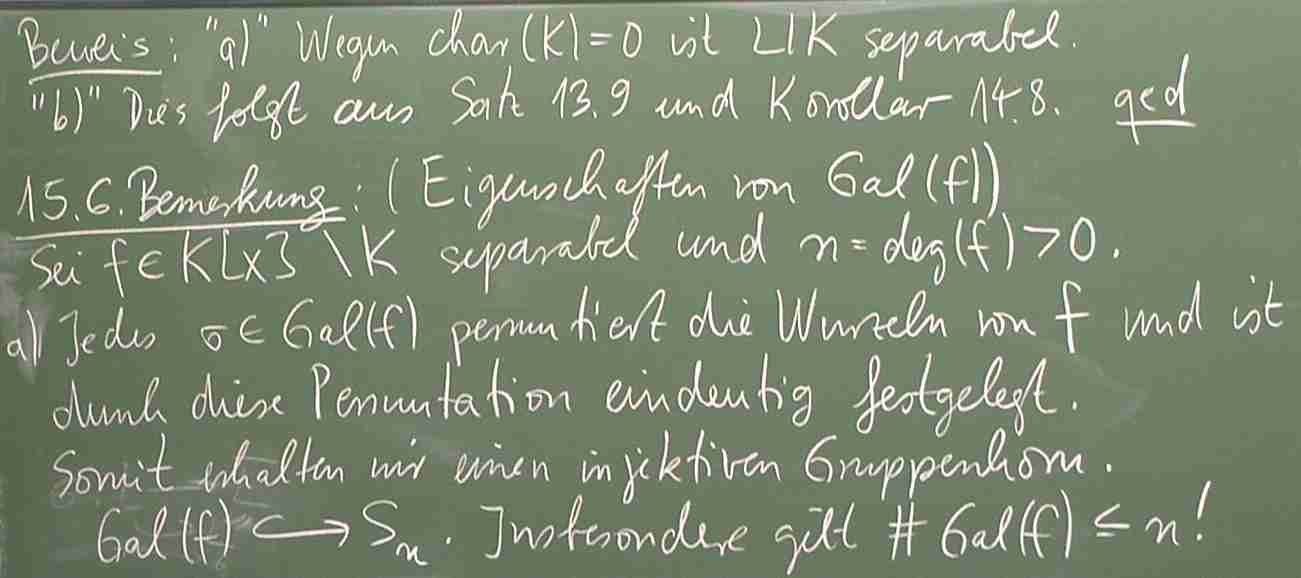 Beweis: "a)" Wegen char(K)=0 ist L|K separabel.
"b)" Dies folgt aus Satz 13.9 und Korollar 14.8. qed
15.6. Bemerkung: (Eigenschaften von Gal(f))
Sei f∈K[x]\K separabel und n=deg(f)>0.
a) Jedes σ∈Gal(f) permutiert die Wurzeln von f und ist
durch diese Permutation eindeutig festgelegt.
Somit erhalten wir einen injektiven Gruppenhom.
Gal(f) ↪ Sₙ. Insbesondere gilt # Gal(f) ≤ n!